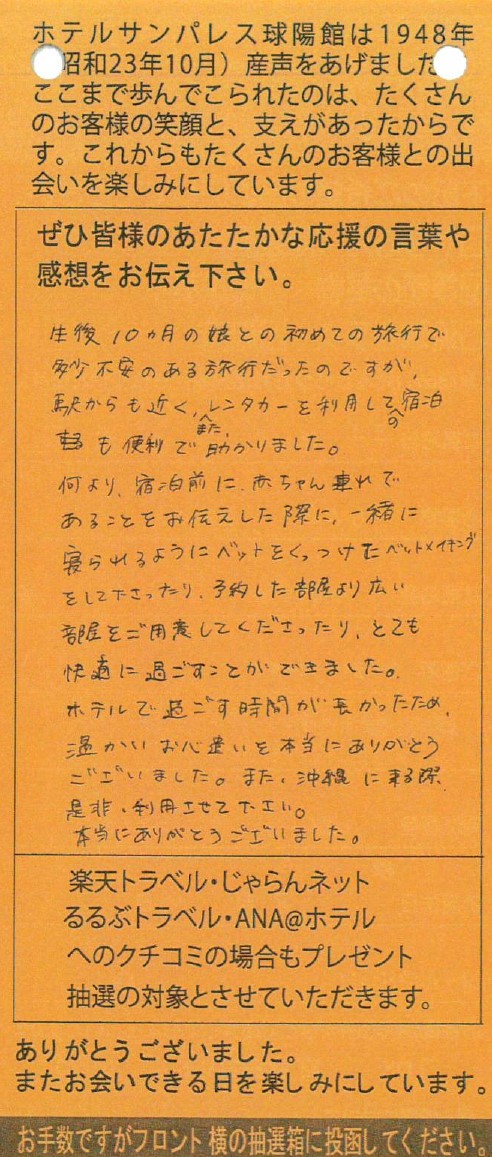 ホテルサンパレス球陽館は1948年
昭和23年10月）産声をあげました
ここまで歩んでこられたのは、たくさん
のお客様の笑顔と、支えがあったからで
す。これからもたくさんのお客様との出
会いを楽しみにしています。
ぜひ皆様のあたたかな応援の言葉や
感想をお伝え下さい。
生後10ヵ月の娘との初めての旅行で
多少不安のある旅行だったのですが、
駅からも近く、また、レンタカーを利用しての宿泊
も便利で助かりました。
何より、宿泊前に、赤ちゃん連れで
あることをお伝えした際に、一緒に
寝られるようにベットをくっつけたベットメイキング
をして下さったり、予約した部屋より広い
部屋をご用意してくださったり、とても
快適に過ごすことができました。
ホテルで過ごす時間が長かったため、
温かいお心遣いを本当にありがとう
ございました。また、沖縄に来る際、
是非、利用させて下さい。
本当にありがとうございました。
楽天トラベル・じゃらんネット
るるぶトラベル・ANA@ホテル
へのクチコミの場合もプレゼント
抽選の対象とさせていただきます。
ありがとうございました。
またお会いできる日を楽しみにしています。
お手数ですがフロント横の抽選箱に投函してください。